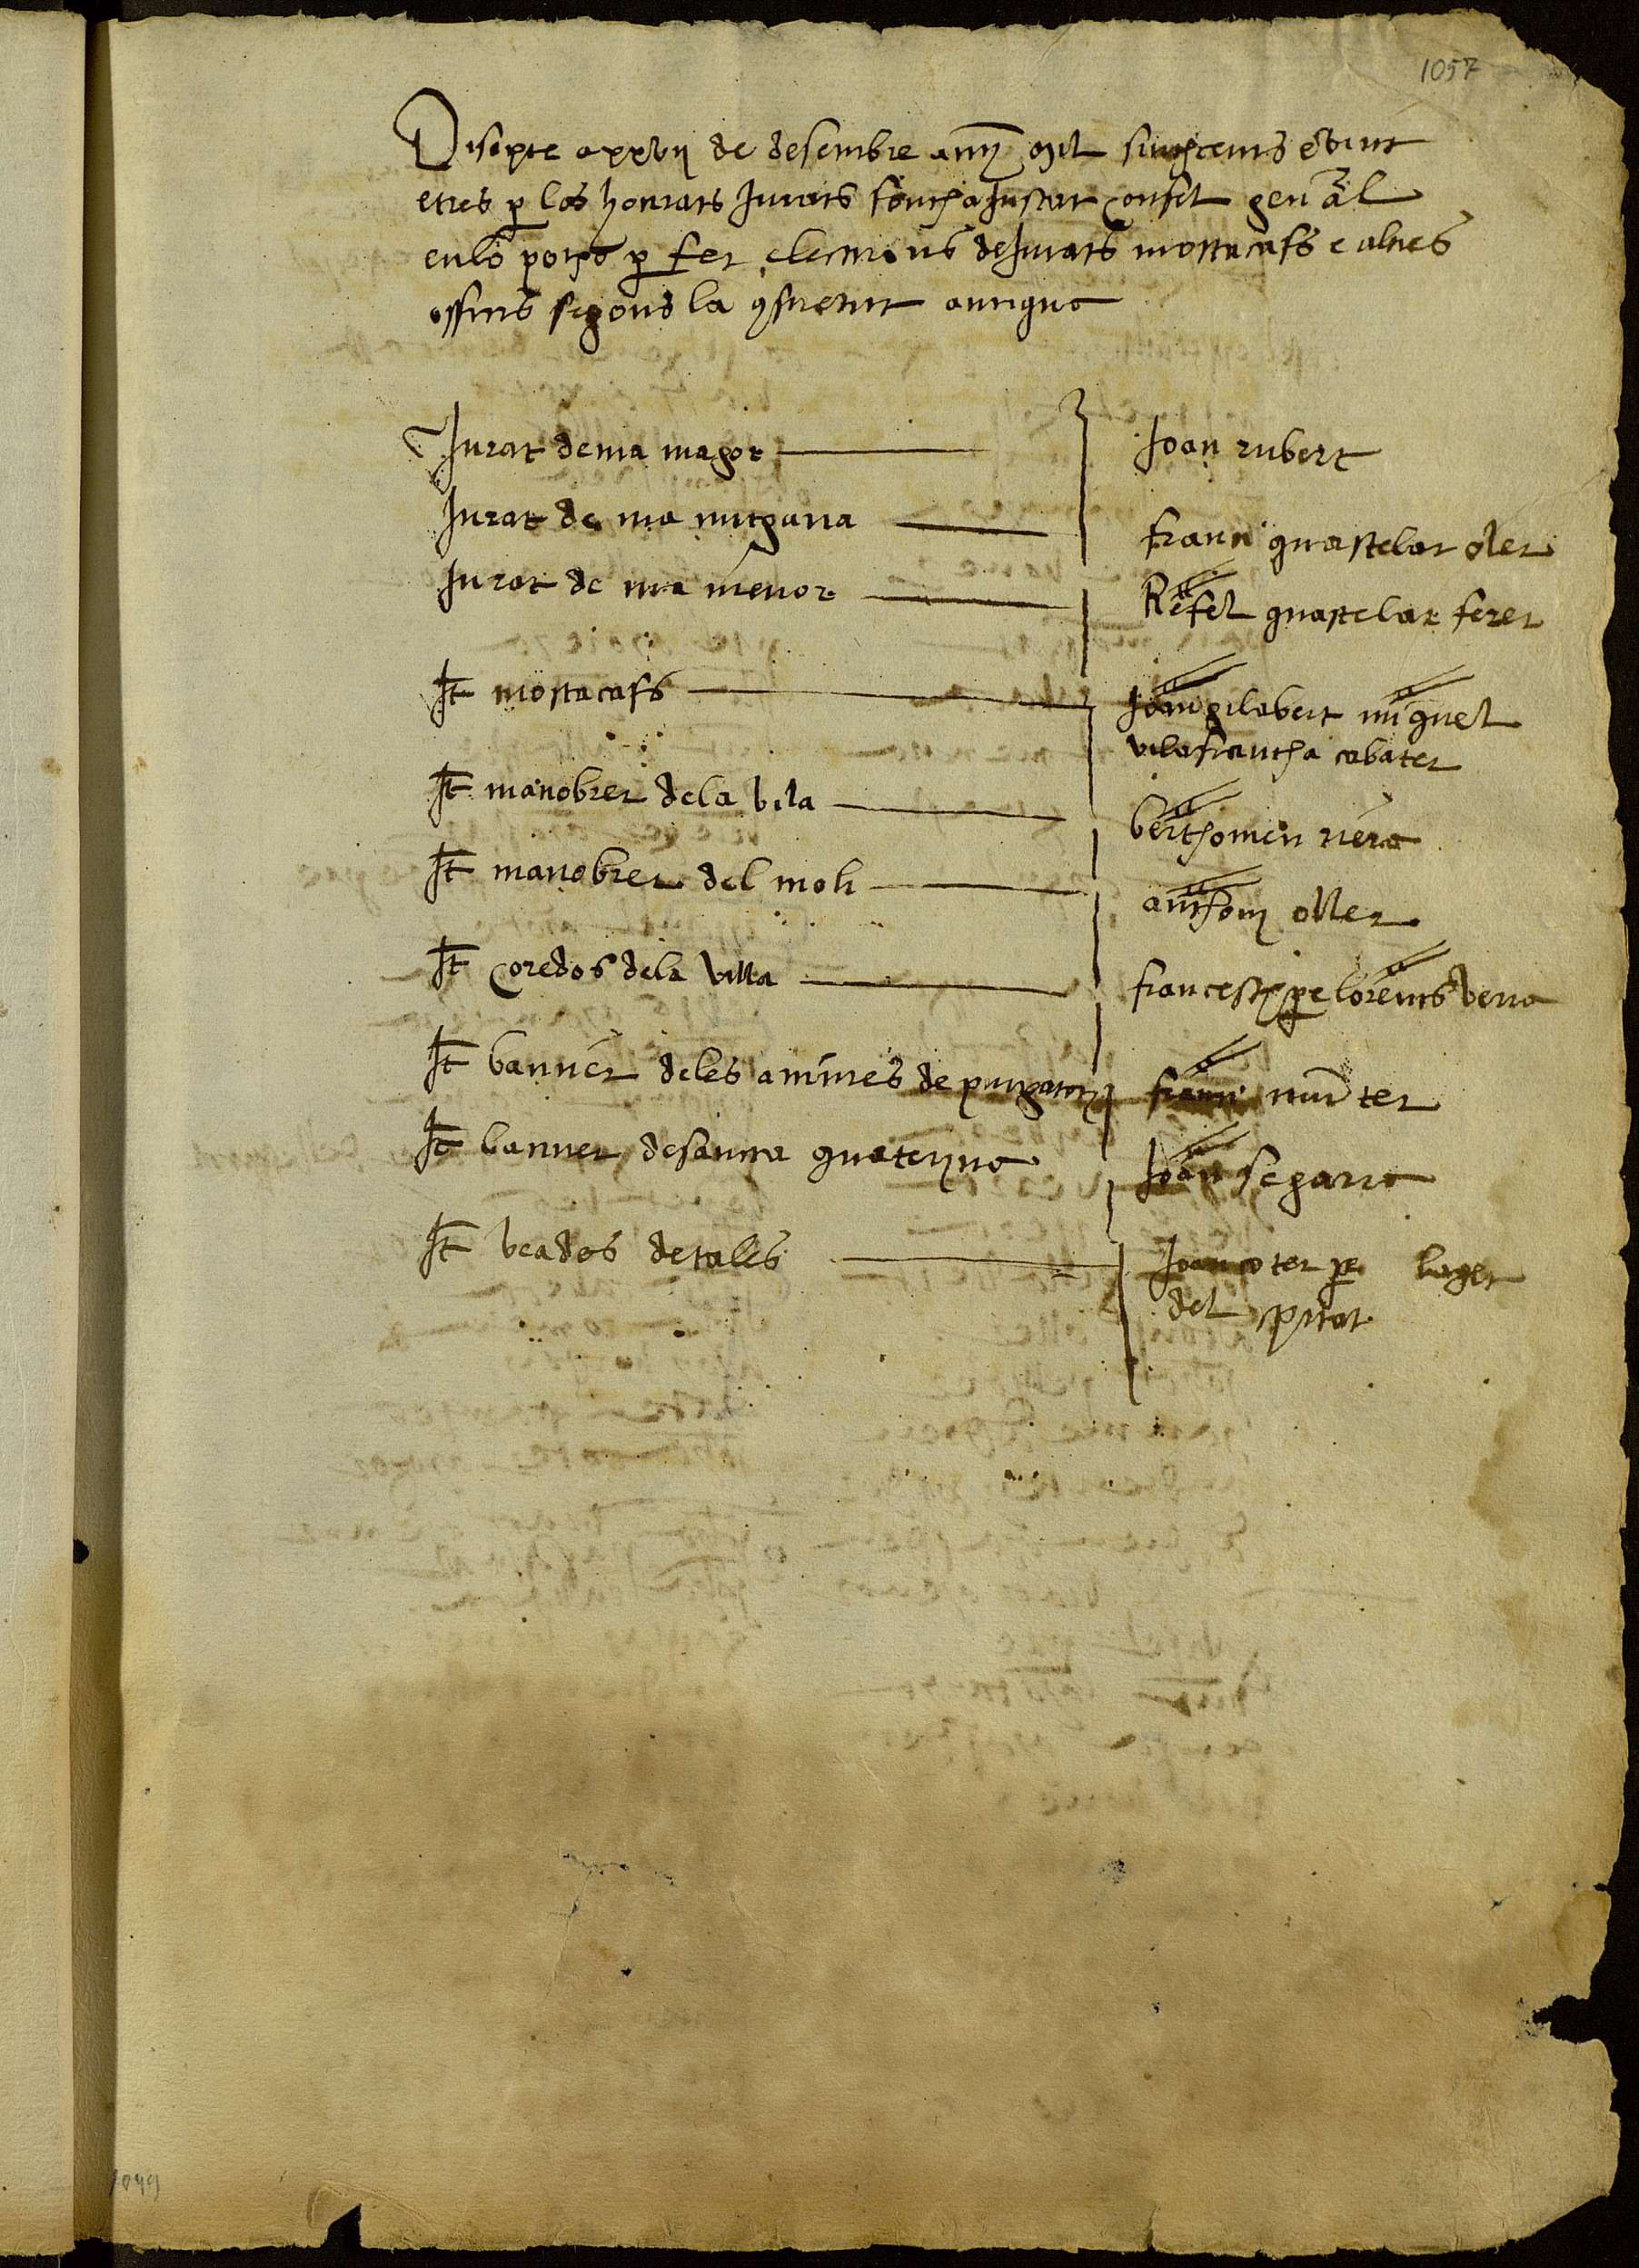 1057
Disapte a xxvij de desembre any mil sinchcents e vint
e tres p los honrats Jurats fonch aJustat consel general
en lo porxo p fer elections de Jurats mostacafs e altres
officis segons la consuetut antigua
Jurat de ma magor Joan rubert
Jurat de ma mitgana franci guastelar oler
Jurat de ma menor Rafel guastelar ferer
It mostacafs Joan gilabert miquel
vilafrancha cabater
It manobrer de la vila berthomeu riera
It manobrer del moli anthoni oller
It coredos de la villa francesch pere lorens vena
It baniner de les animes de purgatori franci munter
It baniner de santa quaterina Joan segara
It veados de tales Joan coter pere loger
del pitat
1049